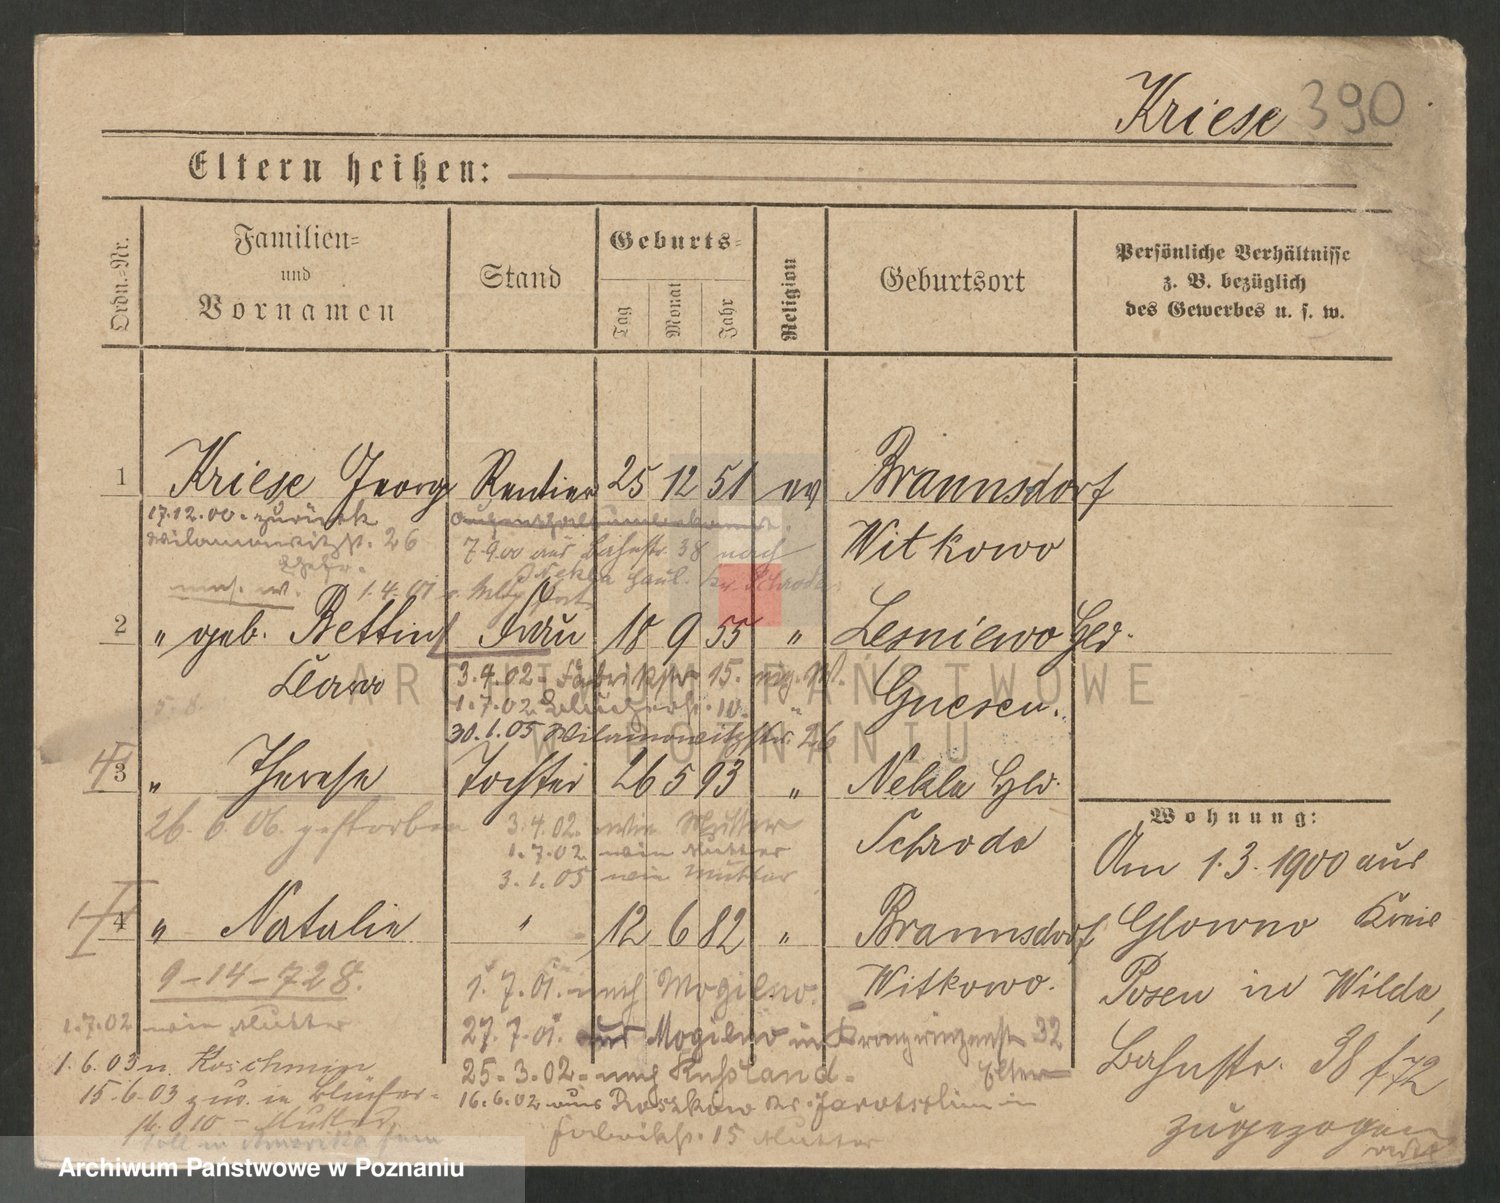 Kriese 390
Eltern heißen:
Ordn.-Nr.
Familien-
und
Vornamen
Stand
Geburts-
Tag
Monat
Jahr
Religion
Geburtsort
Persönliche Verhältnisse
z. B. bezüglich
des Gewerbes u. s. w.
1 Kriese Georg Rentier 25 12 51 ev Braunsdorf
17.12.00 - zurück
Wilamowitzstr. 26
7.9.00 aus Bahnstr. 38 nach
Nekla
1.4.01
Witkowo
2 " geb. Bettin Frau 18 9 55 " Lesniewo Hld.
3.4.02 - Fabrikstr. 15.
1.7.02 Blücherstr. 10.
30.1.05 Wilamowitzstr. 26
Gnesen.
3 " Therese Tochter 26 5 93 " Nekla Hld.
26.6.06. gestorben
3.4.02. wie Mutter
1.7.02 wie Mutter
3.1.05 wie Mutter
Schroda
4 " Natalie " 12 6 82 " Braunsdorf
9-14-728.
1.7.01. nach Mogilno.
Witkowo.
1.7.02 wie Mutter
27.7.01. aus Mogilno in Kronprinzenstr. 32
Eltern
1.6.03 n. Koschmin
25.3.02 - nach Russland -
15.6.03 zur. in Blücher-
16.6.02 aus Roszkow Kr. Jarotschin in
Mutter
Fabrikstr. 15 Mutter
Wohnung:
Am 1.3.1900 aus
Glowno Kreis
Posen in Wilda,
Bahnstr. 38 f. 72
zugezogen
ARCHIWUM PAŃSTWOWE
W POZNANIU
Archiwum Państwowe w Poznaniu